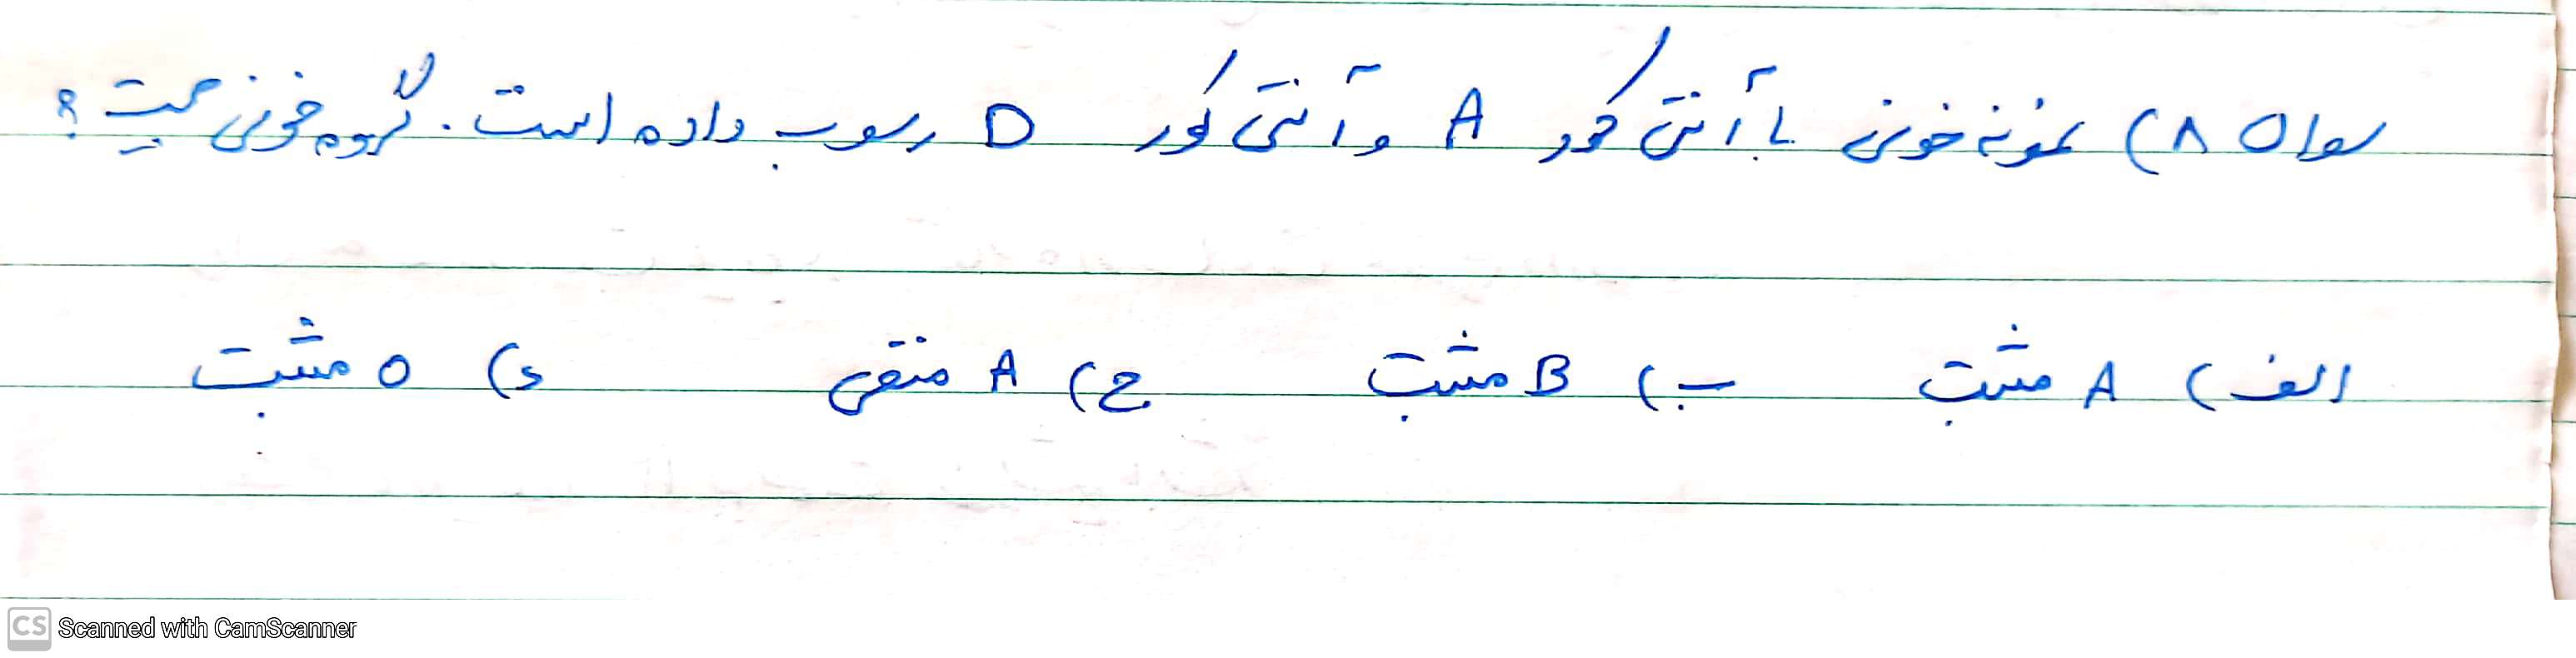 سوال ۸) نمونه خونی با آنتی کور A و آنتی کور D رسوب داده است. گروه خونی چیست؟
الف) A مثبت ب) B مثبت ج) A منفی د) O مثبت
CS Scanned with CamScanner